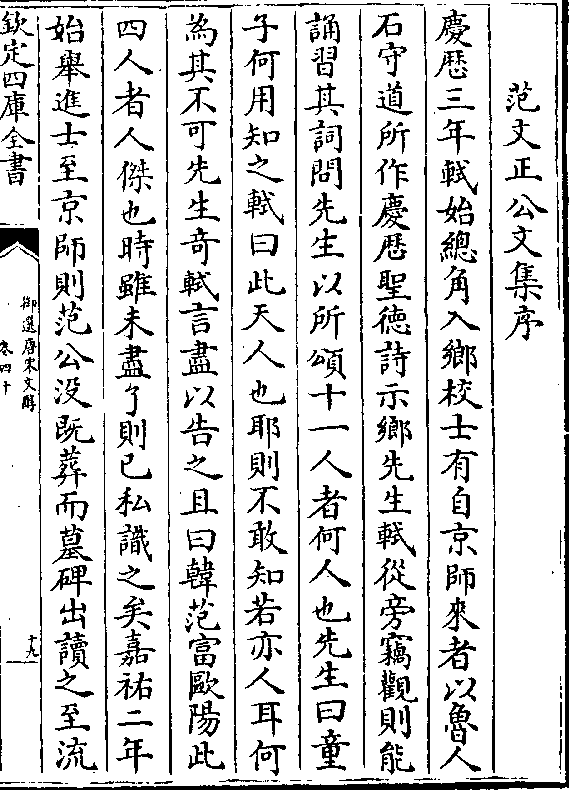 范文正公文集序
慶厯三年軾始總角入鄉校士有自京師來者以魯人
石守道所作慶厯聖徳詩示鄉先生軾從旁竊觀則能
誦習其詞問先生以所頌十一人者何人也先生曰童
子何用知之軾曰此天人也耶則不敢知若亦人耳何
為其不可先生奇軾言盡以告之且曰韓范富歐陽此
四人者人傑也時雖未盡了則已私識之矣嘉祐二年
始舉進士至京師則范公没既葬而墓碑出讀之至流
欽定四庫全書
御選唐宋文醇
卷四十
十九